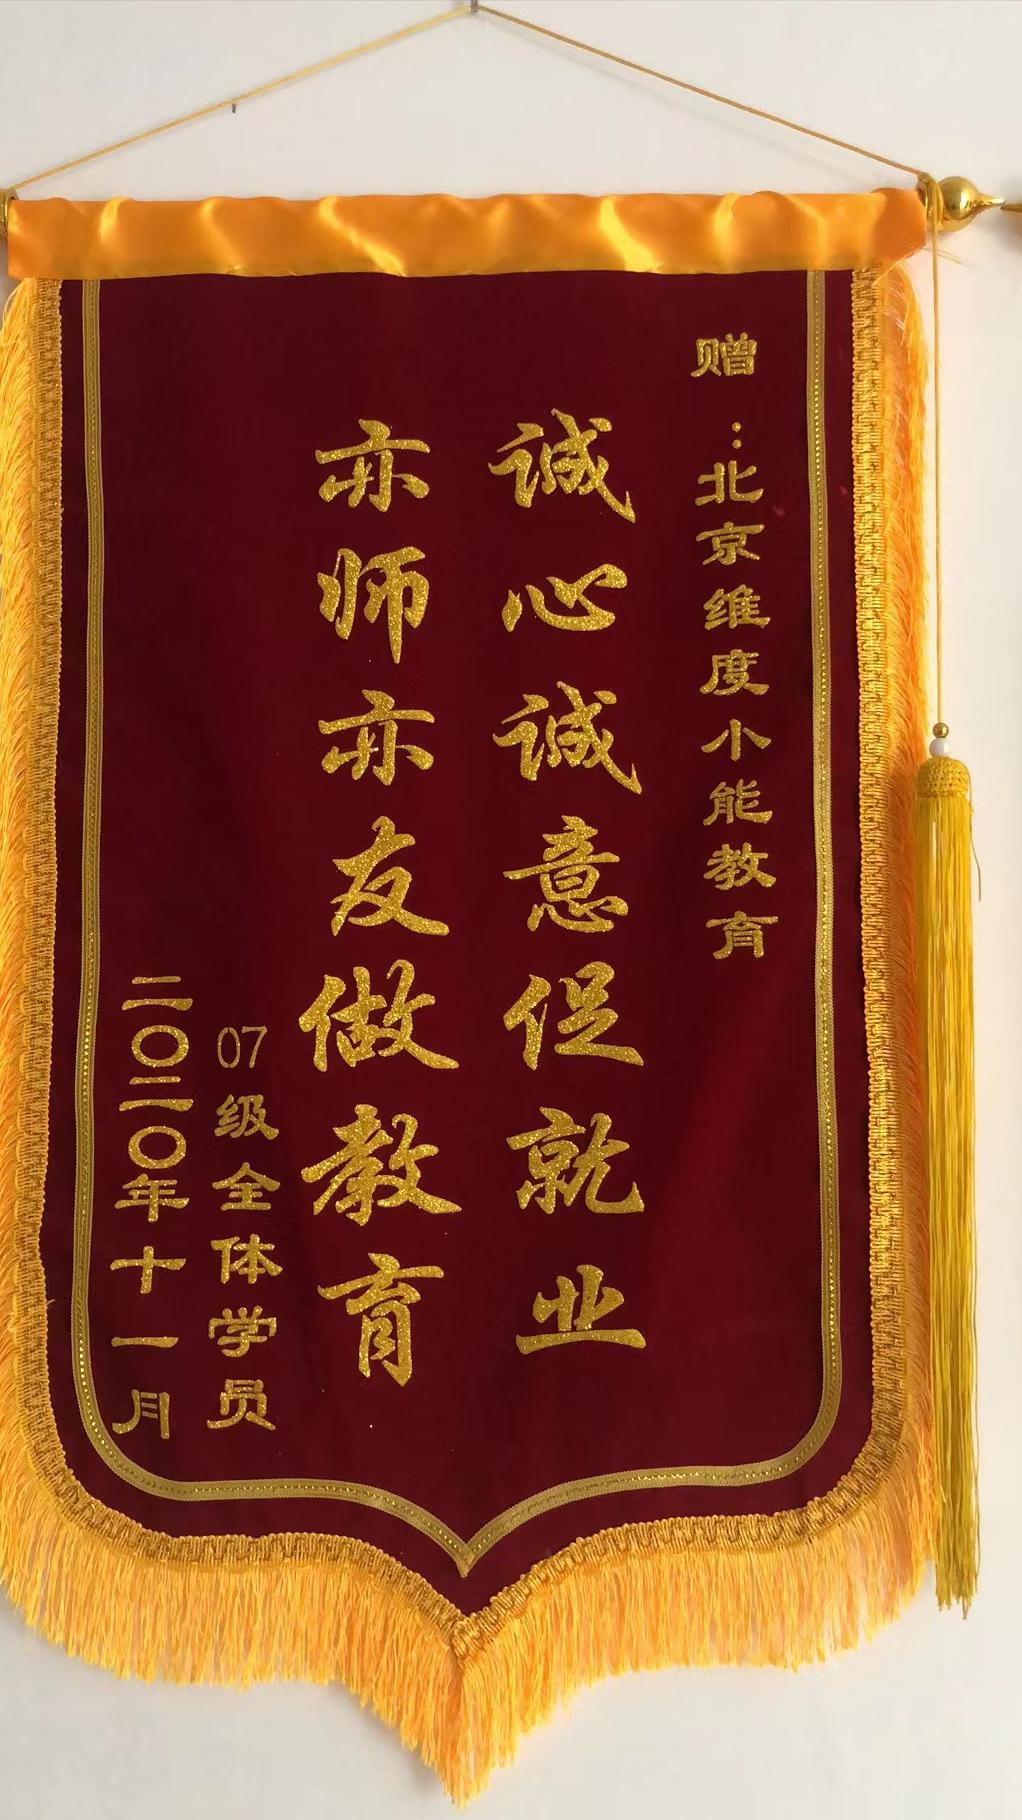 赠：北京维度小能教育
诚心诚意促就业
亦师亦友做教育
07级全体学员
二〇二〇年十一月